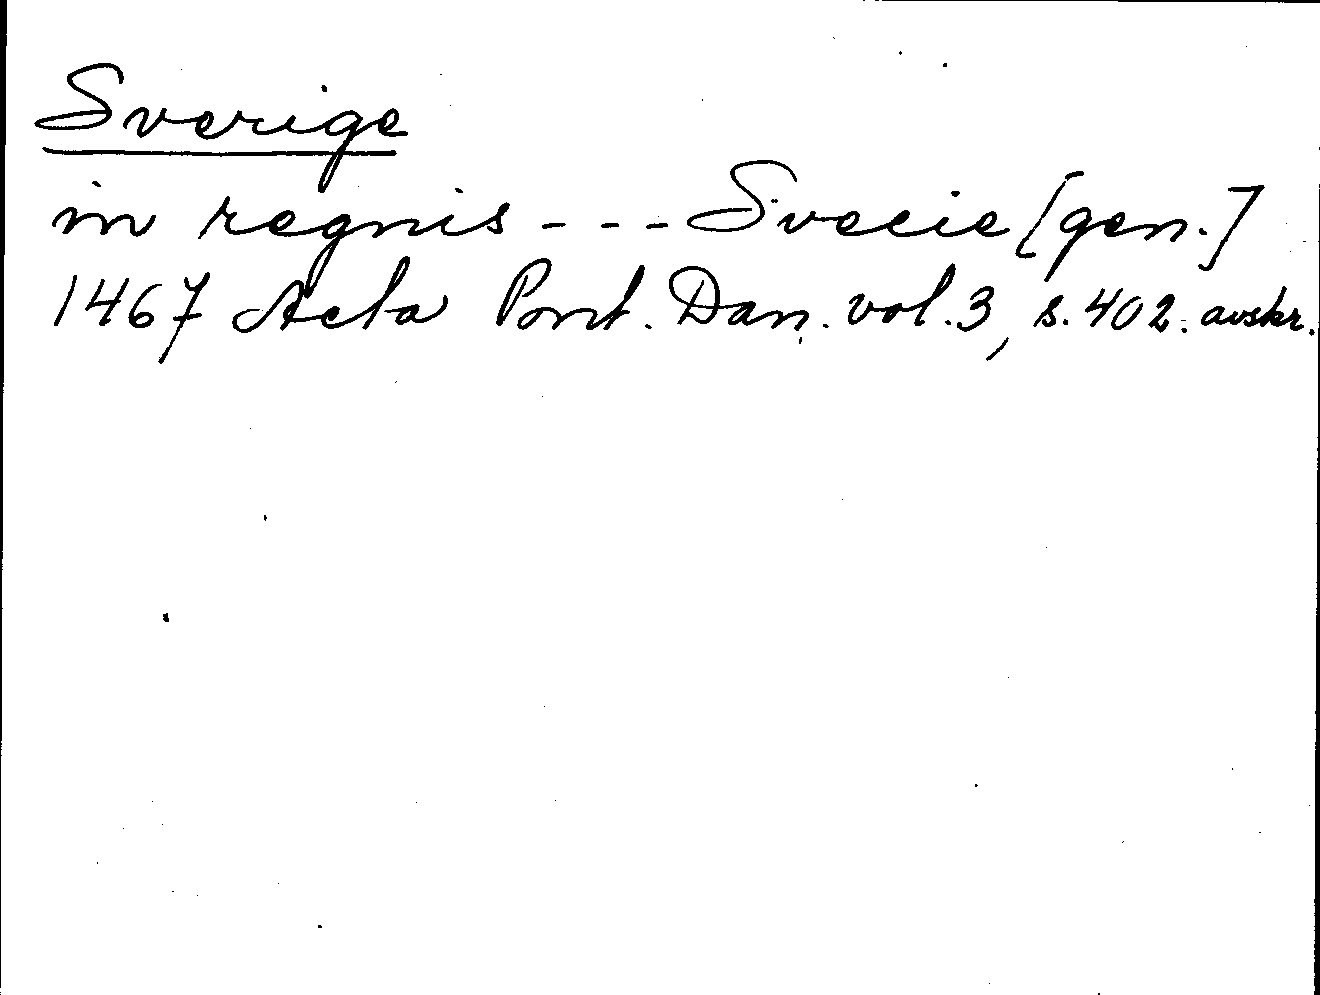 Sverige
in regnis - - - Svecie [gen.]
1467 Acta Pont. Dan. vol. 3, s. 402. avskr.